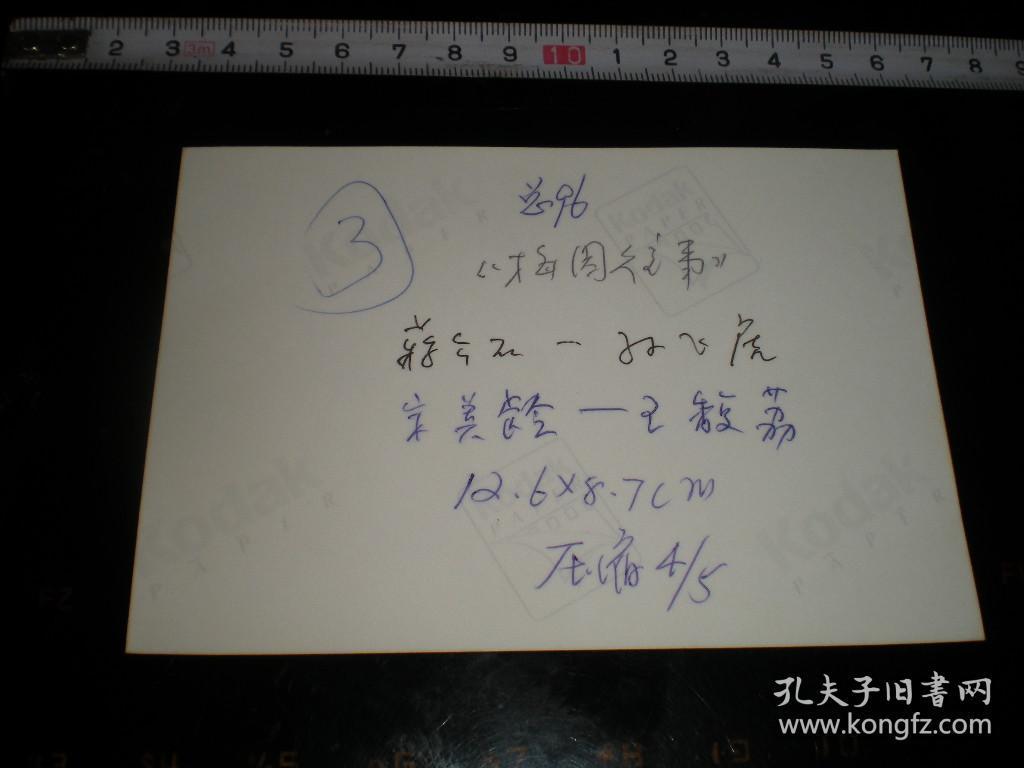 2 3 3m 4 5 6 7 8 9 10 1 2 3 4 5 6 7 8 9
③
总96
《梅园往事》
蒋介石—孙飞虎
宋美龄—王馥荔
12.6×8.7cm
压缩4/5
Kodak
PAPER
孔夫子旧书网
www.kongfz.com